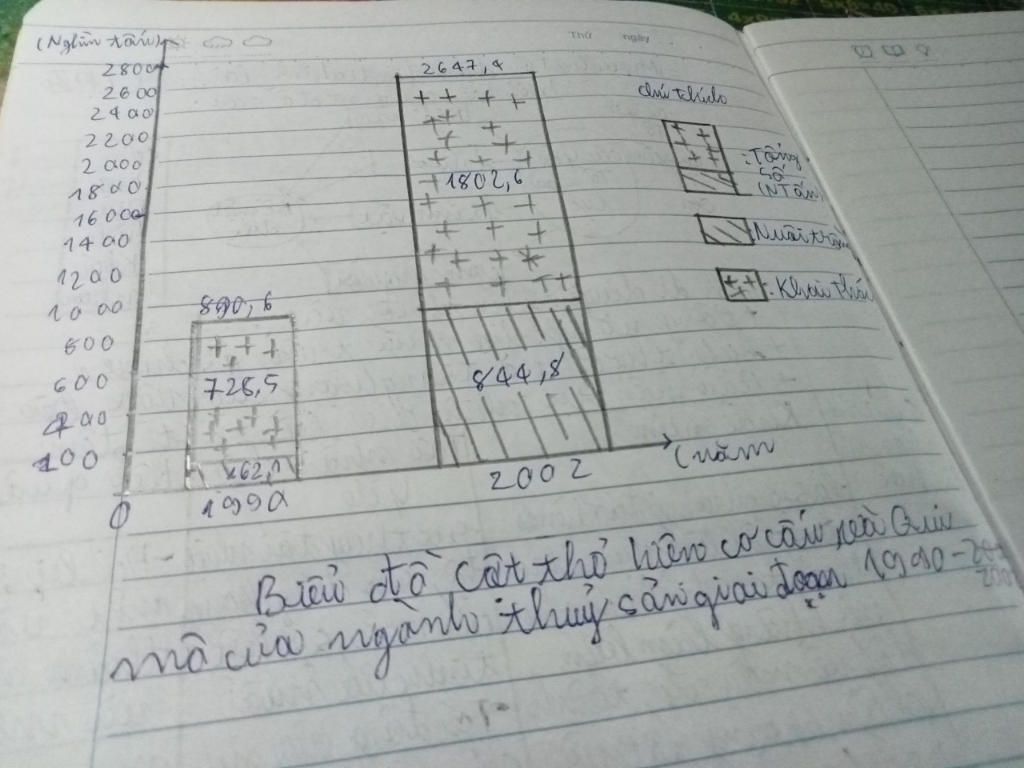 (Nghìn tấn)
Thứ ngày
2800
2600
2400
2200
2000
1800
1600
1400
1200
1000
800
600
200
100
0
890,6
728,5
162,1
1990
2647,4
1802,6
844,8
2002
(năm
chú thích
: Tổng
số
(N Tấn)
Nuôi trồng
: Khai thác
Biểu đồ cột thể hiện cơ cấu và Quy
mô của ngành thuỷ sản giai đoạn 1990-2002